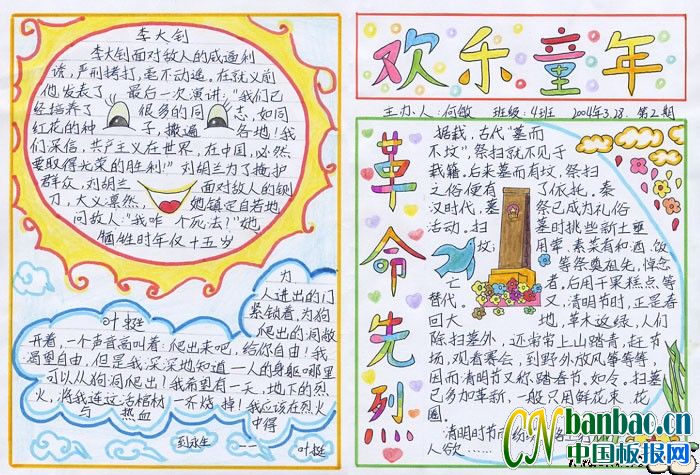 李大钊
李大钊面对敌人的威逼利
诱,严刑拷打,毫不动遥,在就义前
他发表了 最后一次演讲:"我们已
经培养了 很多的同 志,如同
红花的种 子,撒遍 各地!我
们深信,共产主义在世界,在中国,必然
要取得光荣的胜利!"刘胡兰为了掩护
群众,刘胡兰 面对敌人的铡
刀,大义凛然, 她镇定自若地
问敌人:"我咋 个死法?"她
牺牲时年仅十五岁
叶挺
为
人进出的门
紧锁着,为狗
爬出的洞敞
开着,一个声音高叫着:爬出来吧,给你自由!我
渴望自由,但是我深深地知道一人的身躯哪里
可以从狗洞爬出!我希望有一天,地下的烈
火,将我连这活棺材一齐烧掉!我应该在烈火
与 热血 中得
到永生 —— 叶挺
欢乐童年
主办人:何敏 班级:4班 2004年3.28. 第2期
革命先烈
据载,古代"墓而
不坟",祭扫就不见于
载籍.后来墓而有坟,祭扫
之俗便有 了依托。秦
汉时代,墓 祭已成为礼俗
活动。扫 墓时挑些新土垩
坟; 用荤、素菜有和酒、饭
等祭奠祖先,悼念
亡 者,后用干果糕点等
替代。 又,清明节时,正是春
回大 地,草木返绿,人们
除扫墓外,还常常上山踏青,赶节
场,观看赛会,到野外放风筝等等,
因而清明节又称踏春节。如今。扫墓
已多加革新,一般只用鲜花束 花
圈。
清明时节雨纷纷,路上行
人欲……
CNbanbao.cn
中国板报网